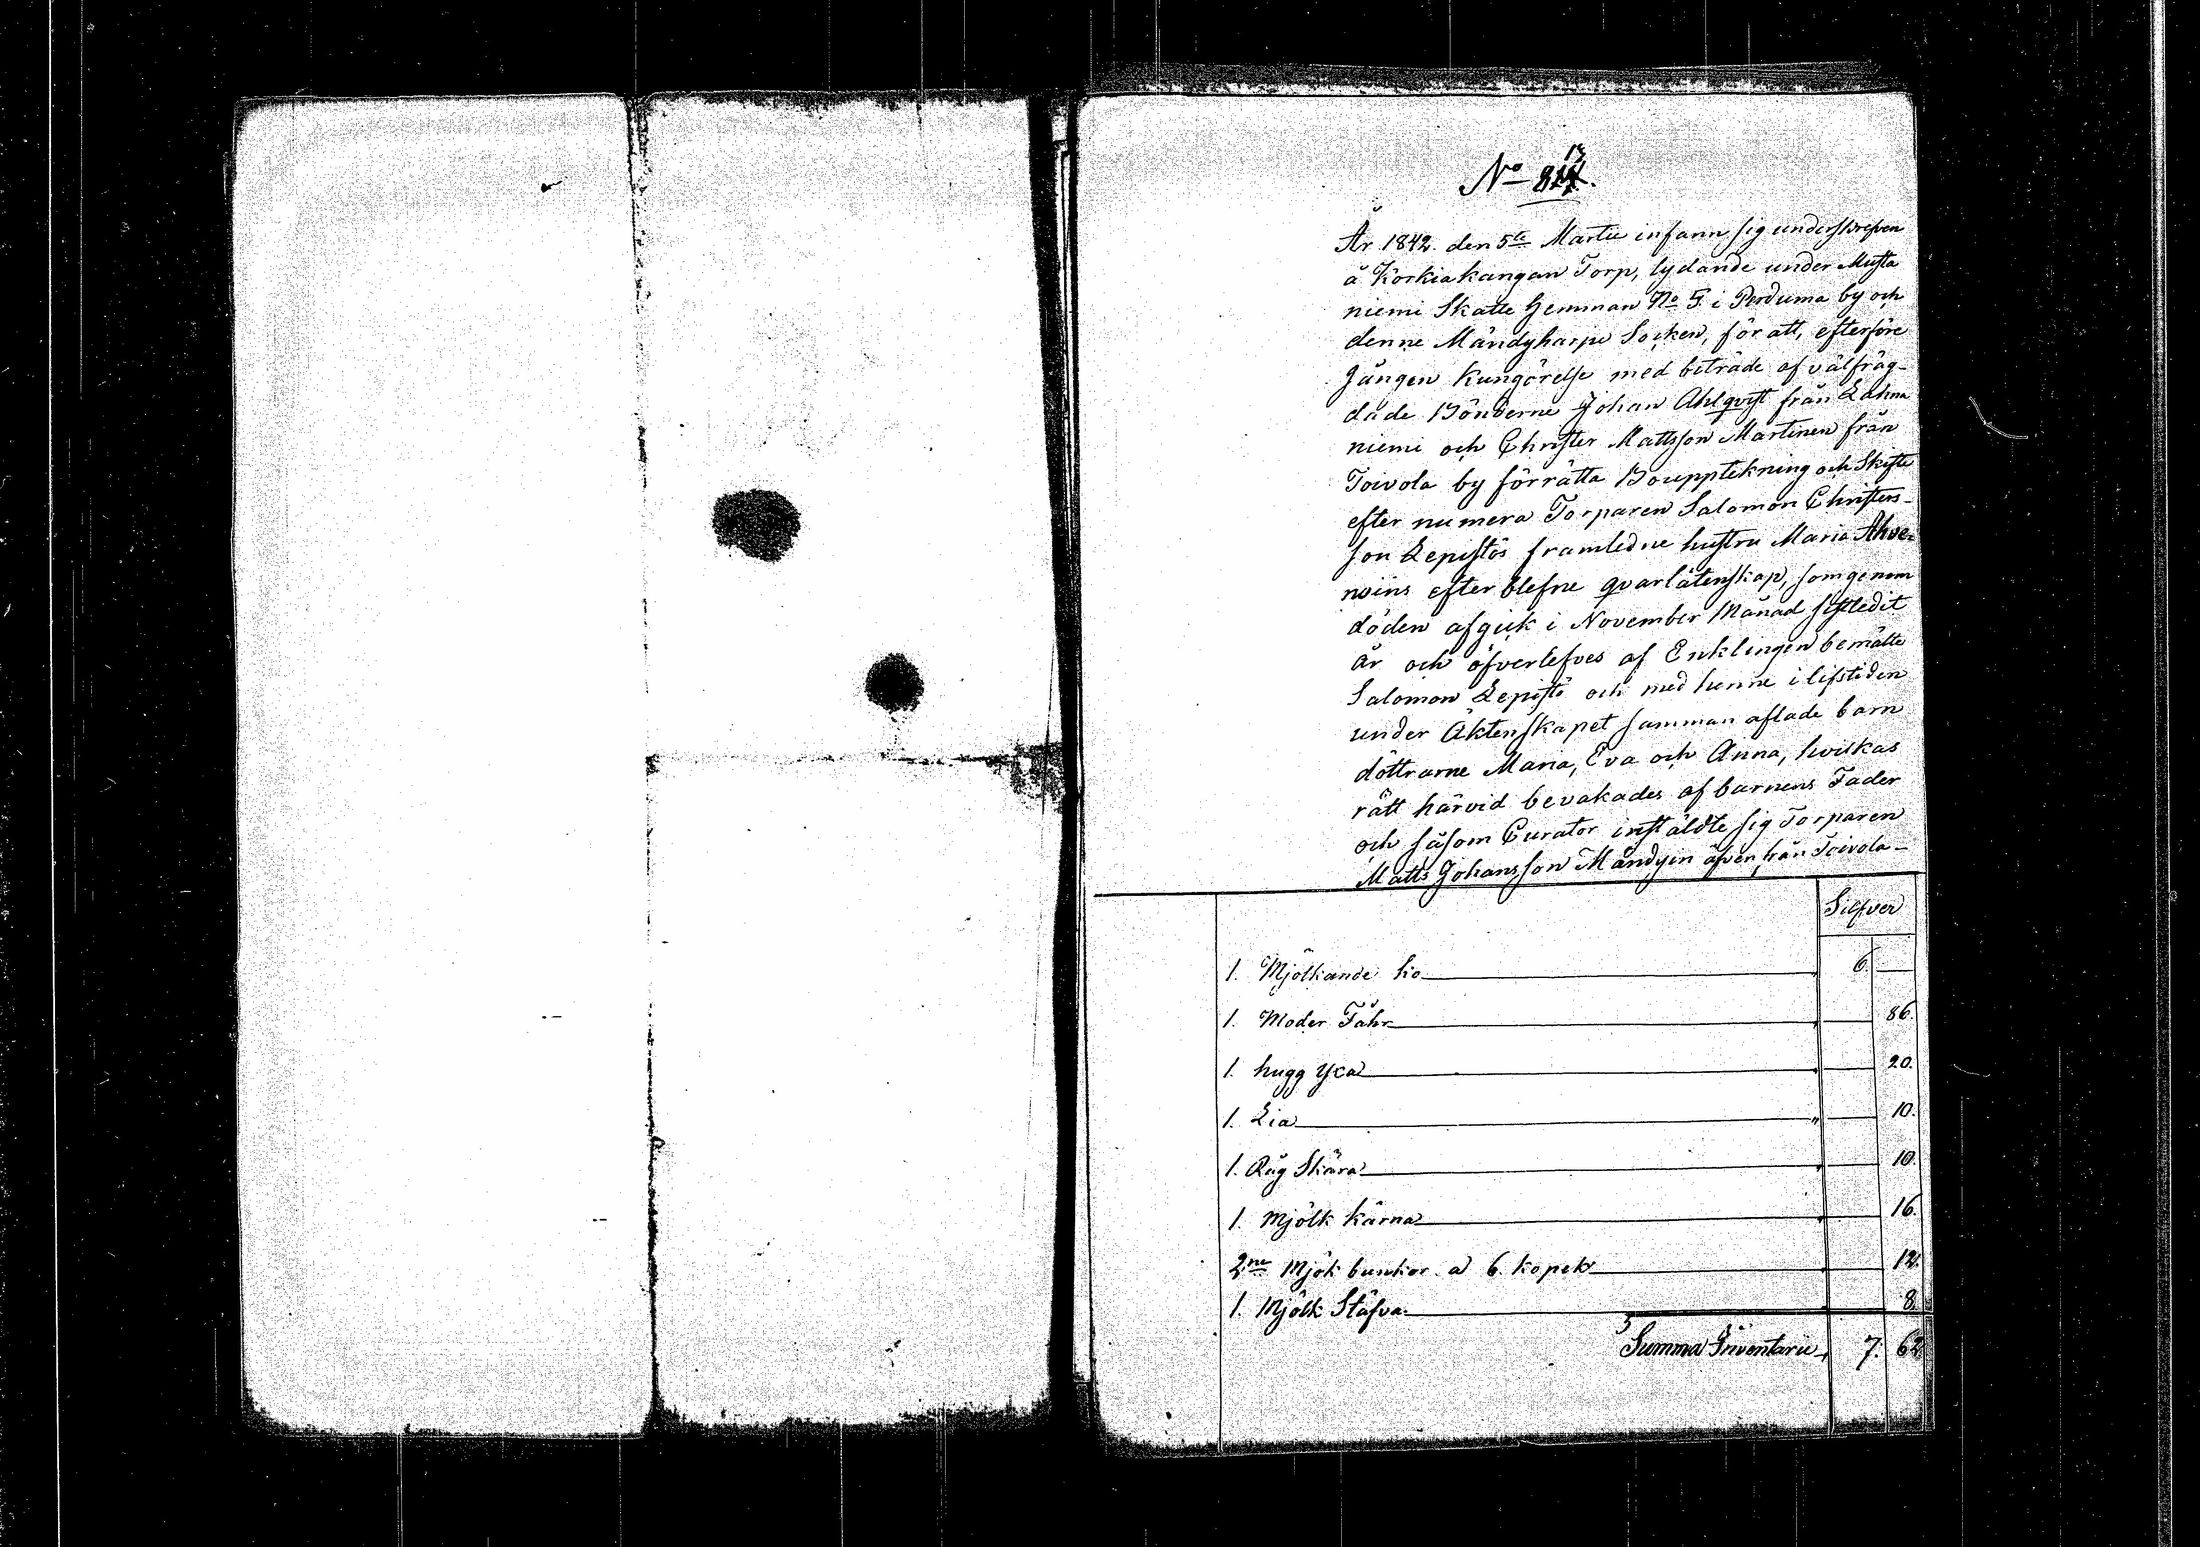 No 813.
År 1842. den 5te Martii infann sig underskrefven
å Korkiakangan Torp, lydande under Musta
niemi Skatte Hemman No 5. i Perduma by och
denne Mändyharju Socken, för att, efterföre
gången kungörelse med beträde af välfräg-
dade Bönderne Johan Ahlqvist från Lahna
niemi och Christer Mattsson Martinen från
Toivola by förrätta Bouppteckning och Skifte
efter numera Torparen Salomon Christers-
son Lepistös framledne hustru Maria Ahve-
noins efterblefne qvarlåtenskap, som genom
döden afgick i November Månad sistledit
år och öfverlefves af Enklingen bemälte
Salomon Lepistö och med henne i lifstiden
under Äktenskapet samman aflade barn
döttrarne Maria, Eva och Anna, hvilkas
rätt härvid bevakades af barnens Fader
och såsom Curator inställdte sig Torparen
Matts Johansson Mändyin äfven från Toivola-
Silfver
1. Mjölkande ko 6. —
1. Moder Fåhr — 86.
1. hugg yxa — 20.
1. Lia " — 10.
1. Råg Skära — 10.
1. Mjölk kärna — 16.
2ne Mjök bunkor a 6. kopek — 12.
1. Mjölk Stäfva — 8
Summa Inventarie 7. 62